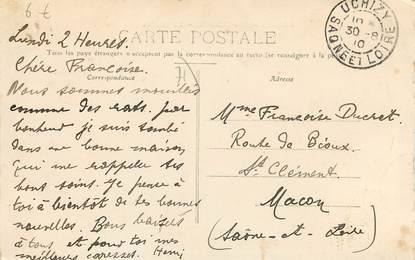 6 €
CARTE POSTALE
Tous les pays étrangers n'acceptent pas la correspondance au recto (se renseigner à la poste)
Correspondance
Adresse
UCHIZY
30-8
10
SAÔNE ET LOIRE
Lundi 2 Heures.
Chère Françoise.
Nous sommes mouillés
comme des rats. par
bonheur je suis tombé
dans une bonne maison
qui me rappelle tes
bons soins. Je pense à
toi à bientôt de tes bonnes
nouvelles. Bons baisers
à tous et pour toi mes
meilleurs caresses. Henri
Mme Françoise Ducret
Route de Bioux.
St Clément.
Macon
(Saône-et-Loire)